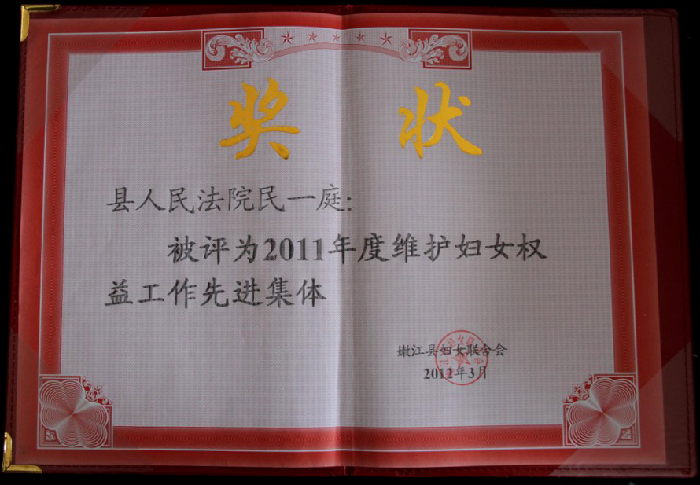 奖 状
县人民法院民一庭:
被评为2011年度维护妇女权
益工作先进集体
嫩江县妇女联合会
2012年3月